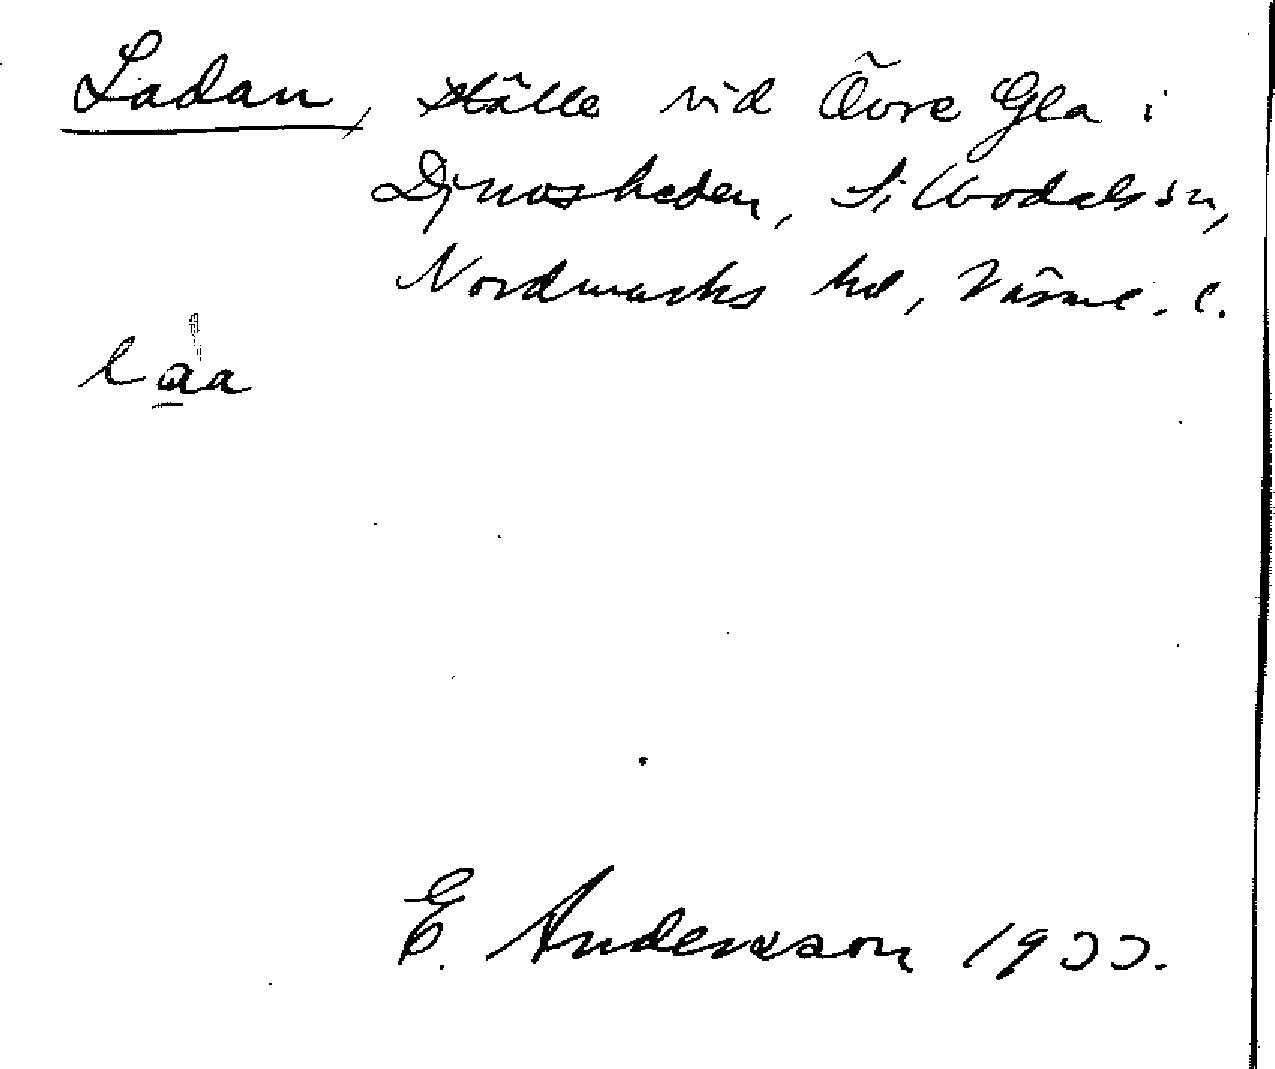 Ladan, ställe vid Övre Gla i
Djuvosheden, Silbodals sn,
Nordmarks hd, Värml. l.
laa
E. Andersson 1933.